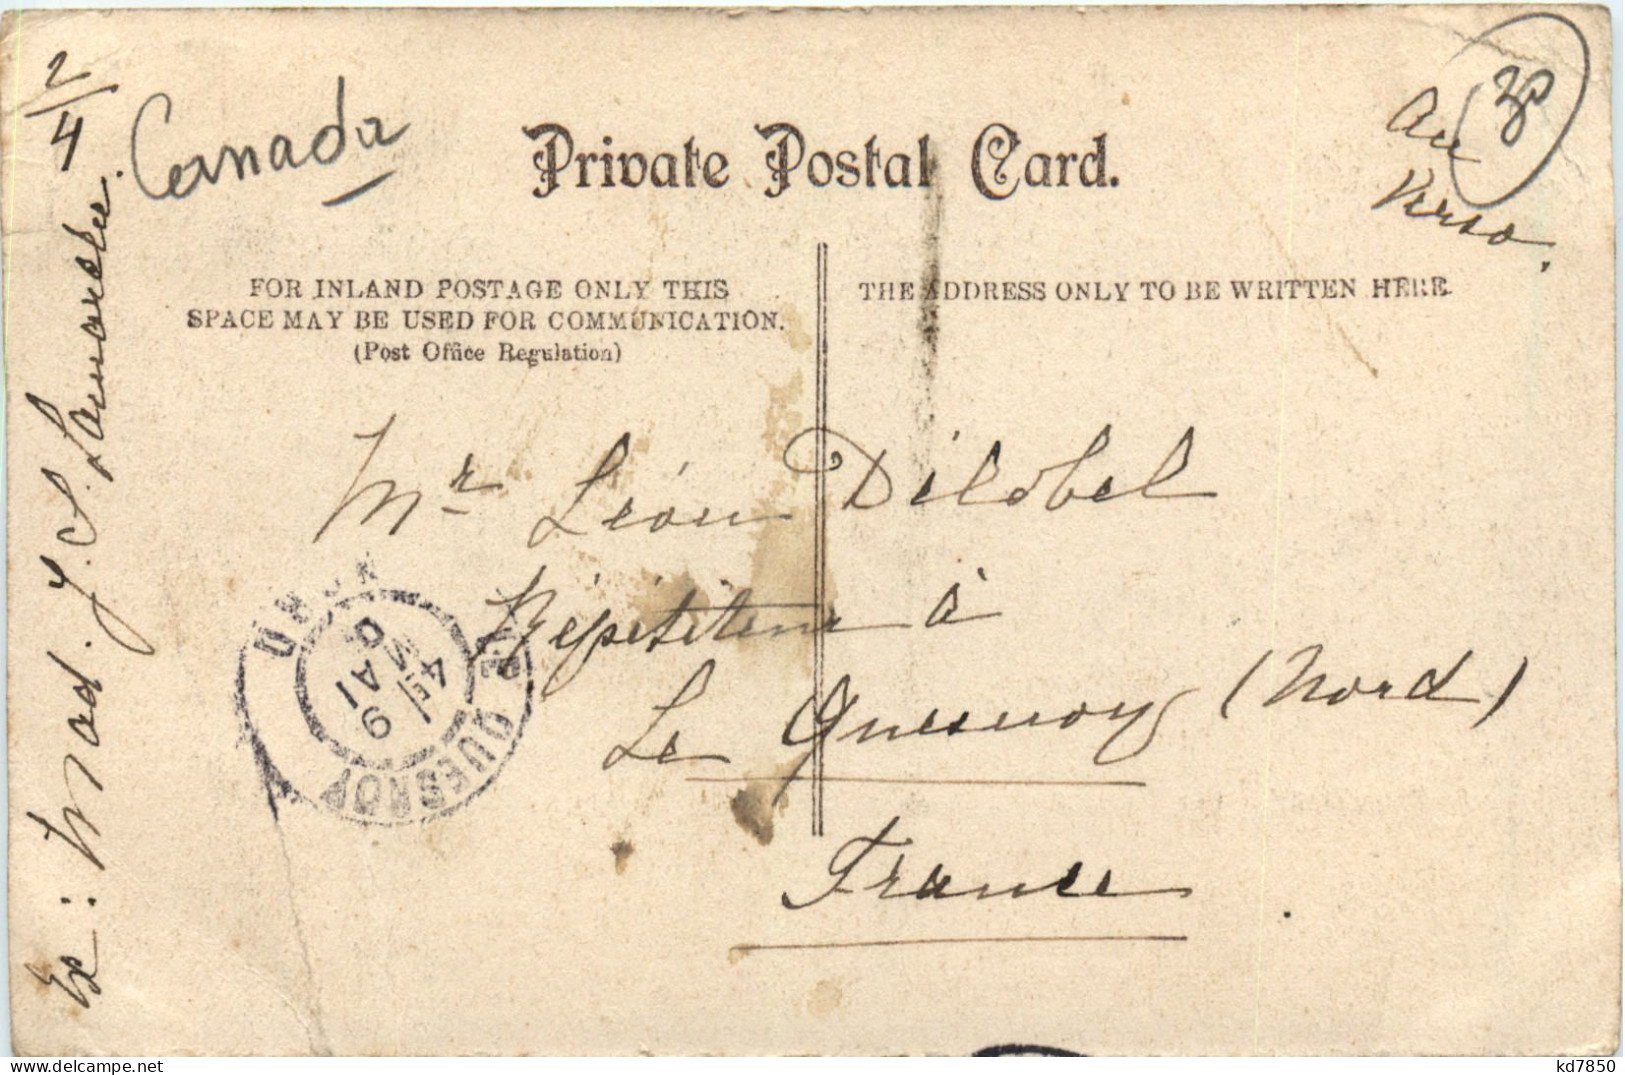 2/4
Canada
Private Postal Card.
Au
Verso.
FOR INLAND POSTAGE ONLY THIS
SPACE MAY BE USED FOR COMMUNICATION.
(Post Office Regulation)
THE ADDRESS ONLY TO BE WRITTEN HERE.
Mr Léon Délobel
Répétiteur à
Le Quesnoy (Nord)
France
Ex: Mad. J. S.
LE QUESNOY
NORD
kd7850